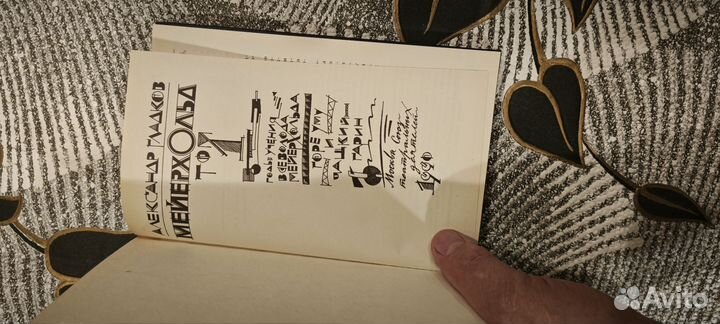 АЛЕКСАНДР ГЛАДКОВ
МЕЙЕРХОЛЬД
ТОМ
1
ГОДЫ УЧЕНИЯ
ВСЕВОЛОДА
МЕЙЕРХОЛЬДА
ГОРЕ УМУ
И
ЧАЦКИЙ—
ГАРИН
Москва Союз
театральных
деятелей
1990
Avito